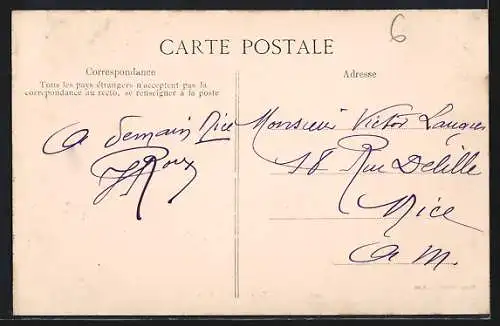 6
CARTE POSTALE
Correspondance
Tous les pays étrangers n'acceptent pas la
correpondance au recto, se renseigner à la poste
A demain Nice
JRoux
Adresse
Monsieur Victor
18 Rue Delille
Nice
A M.